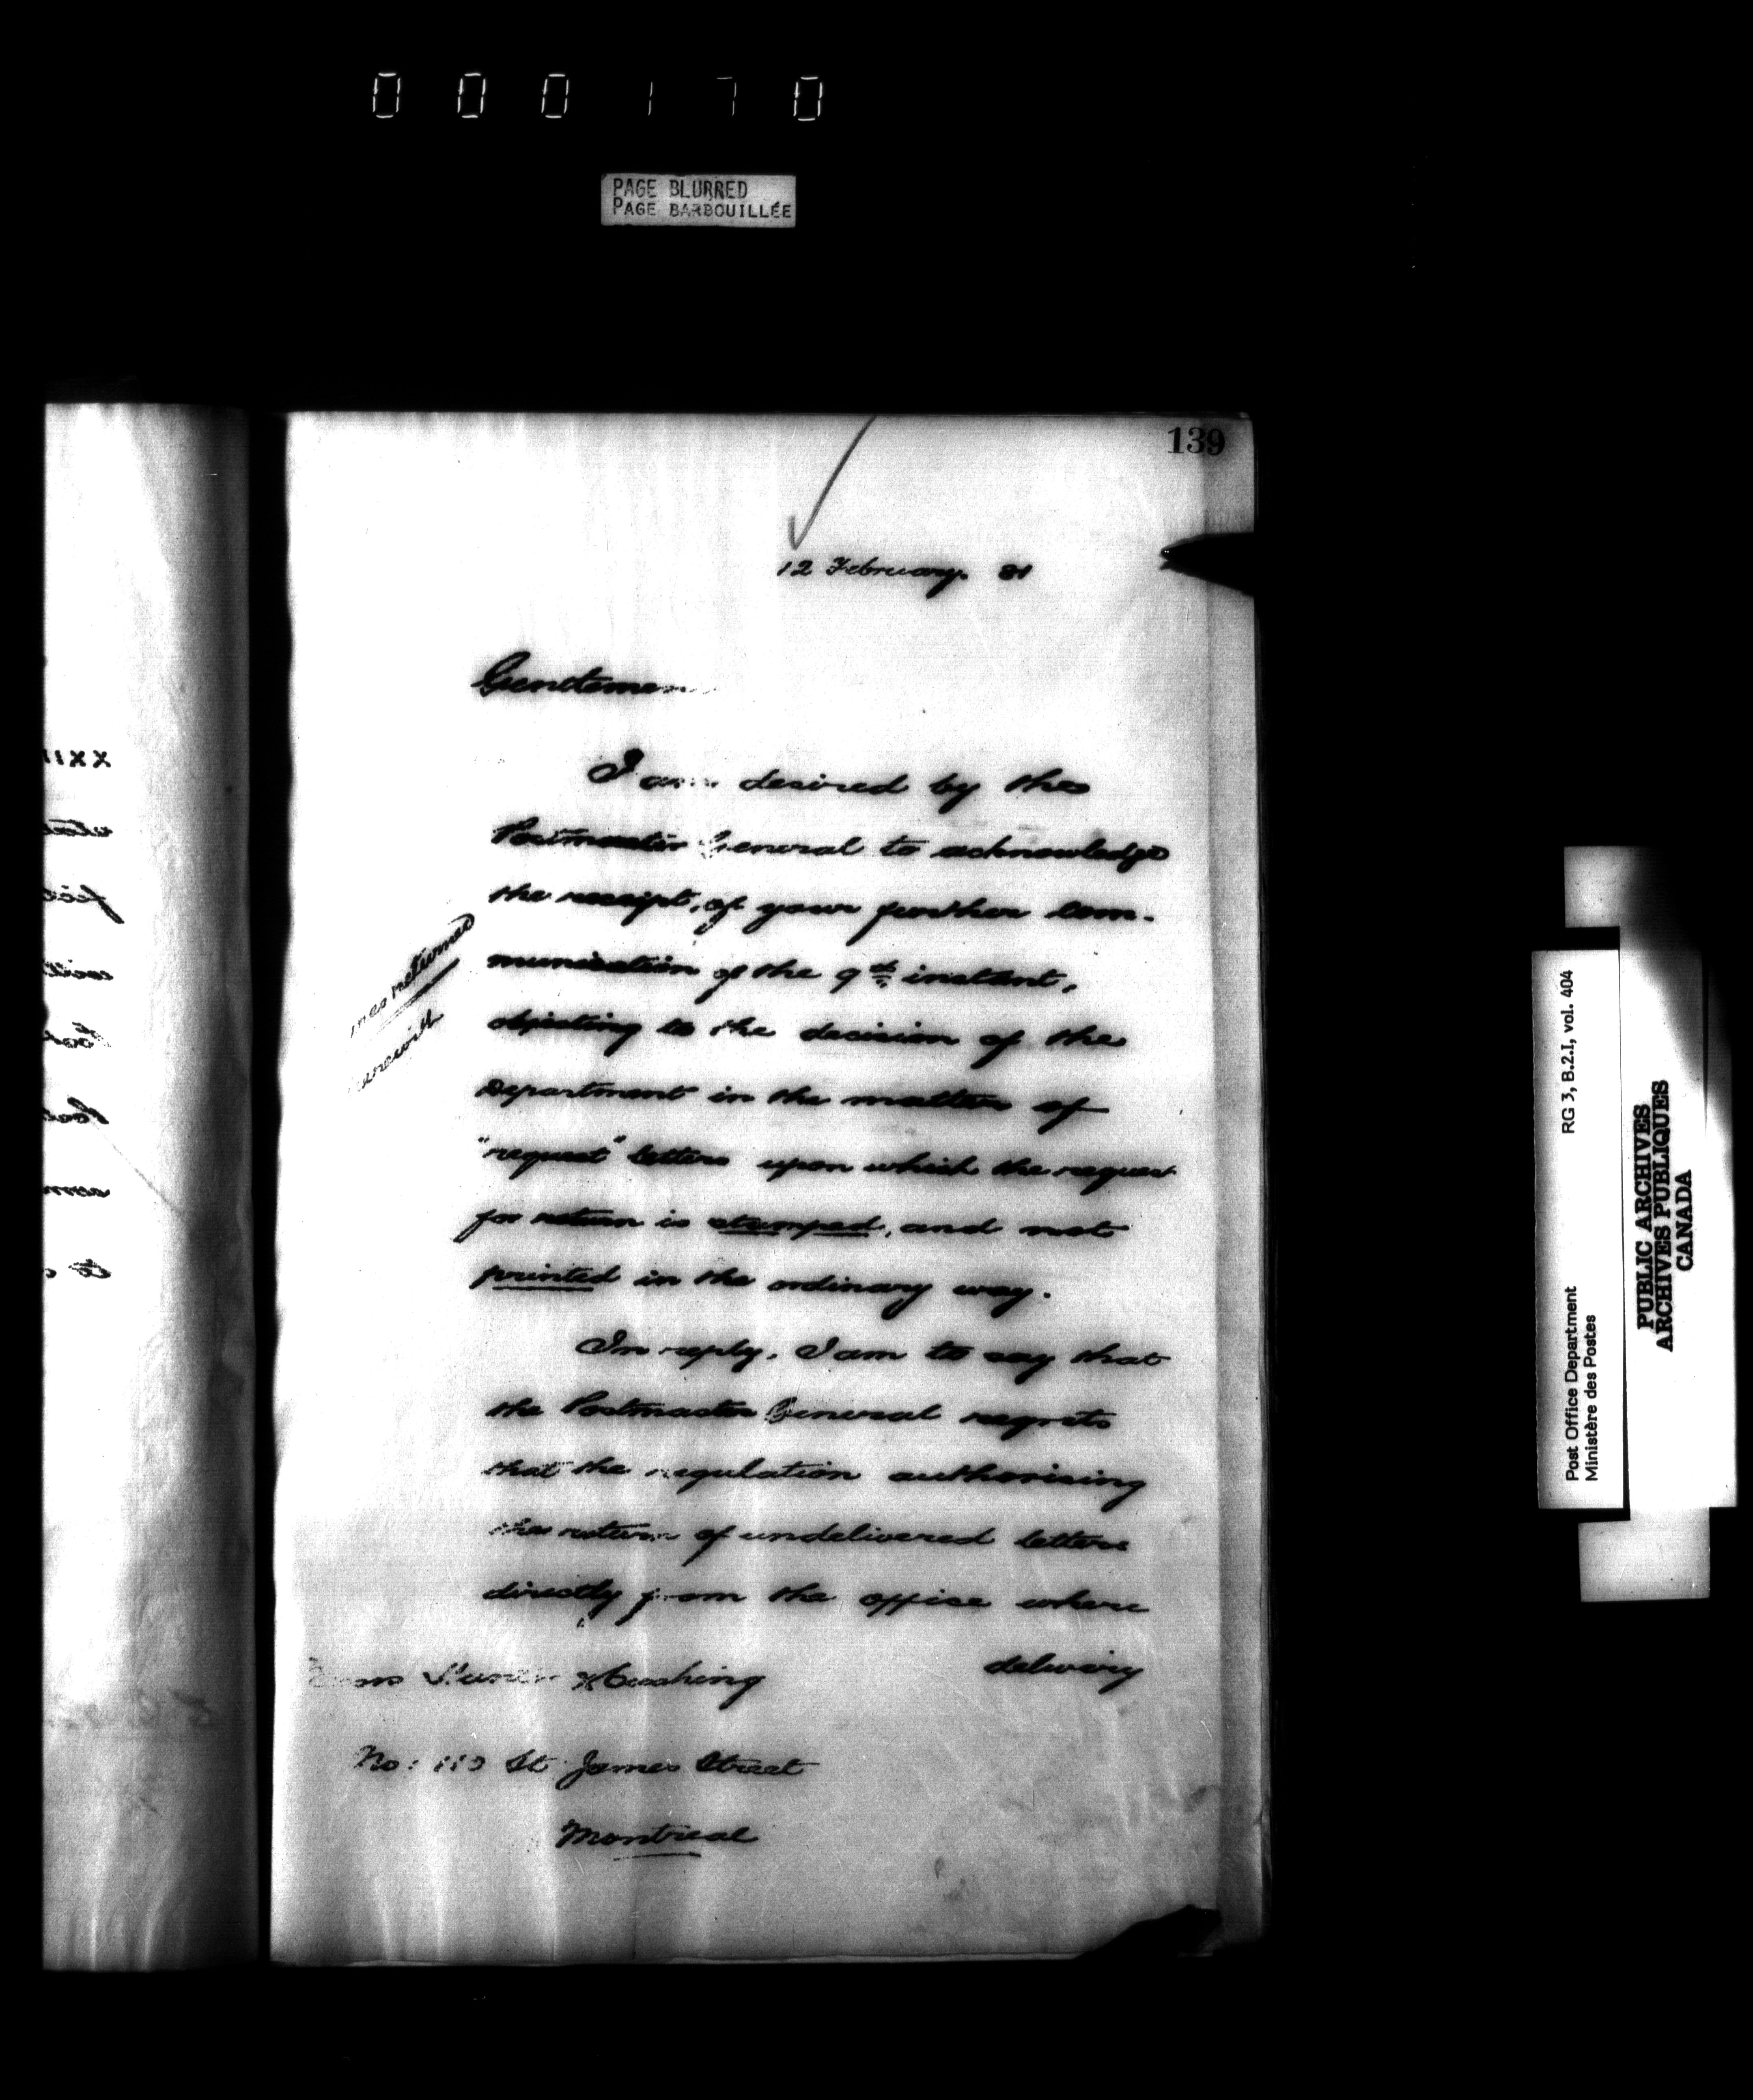 000170
PAGE BLURRED
PAGE BARBOUILLÉE
139
12 February. 81
Gentlemen
I am desired by the
Postmaster General to acknowledge
the receipt, of your further com-
munication of the 9th instant,
objecting to the decision of the
Department in the matter of
"request" letters upon which the request
for return is stamped, and not
printed in the ordinary way.
In reply, I am to say that
the Postmaster General regrets
that the regulation authorising
the return of undelivered letters
directly from the office where
delivery
returned
herewith
Cushing
No: 110 St James Street
Montreal
Post Office Department
Ministère des Postes
RG 3, B.2.I, vol. 404
PUBLIC ARCHIVES
ARCHIVES PUBLIQUES
CANADA